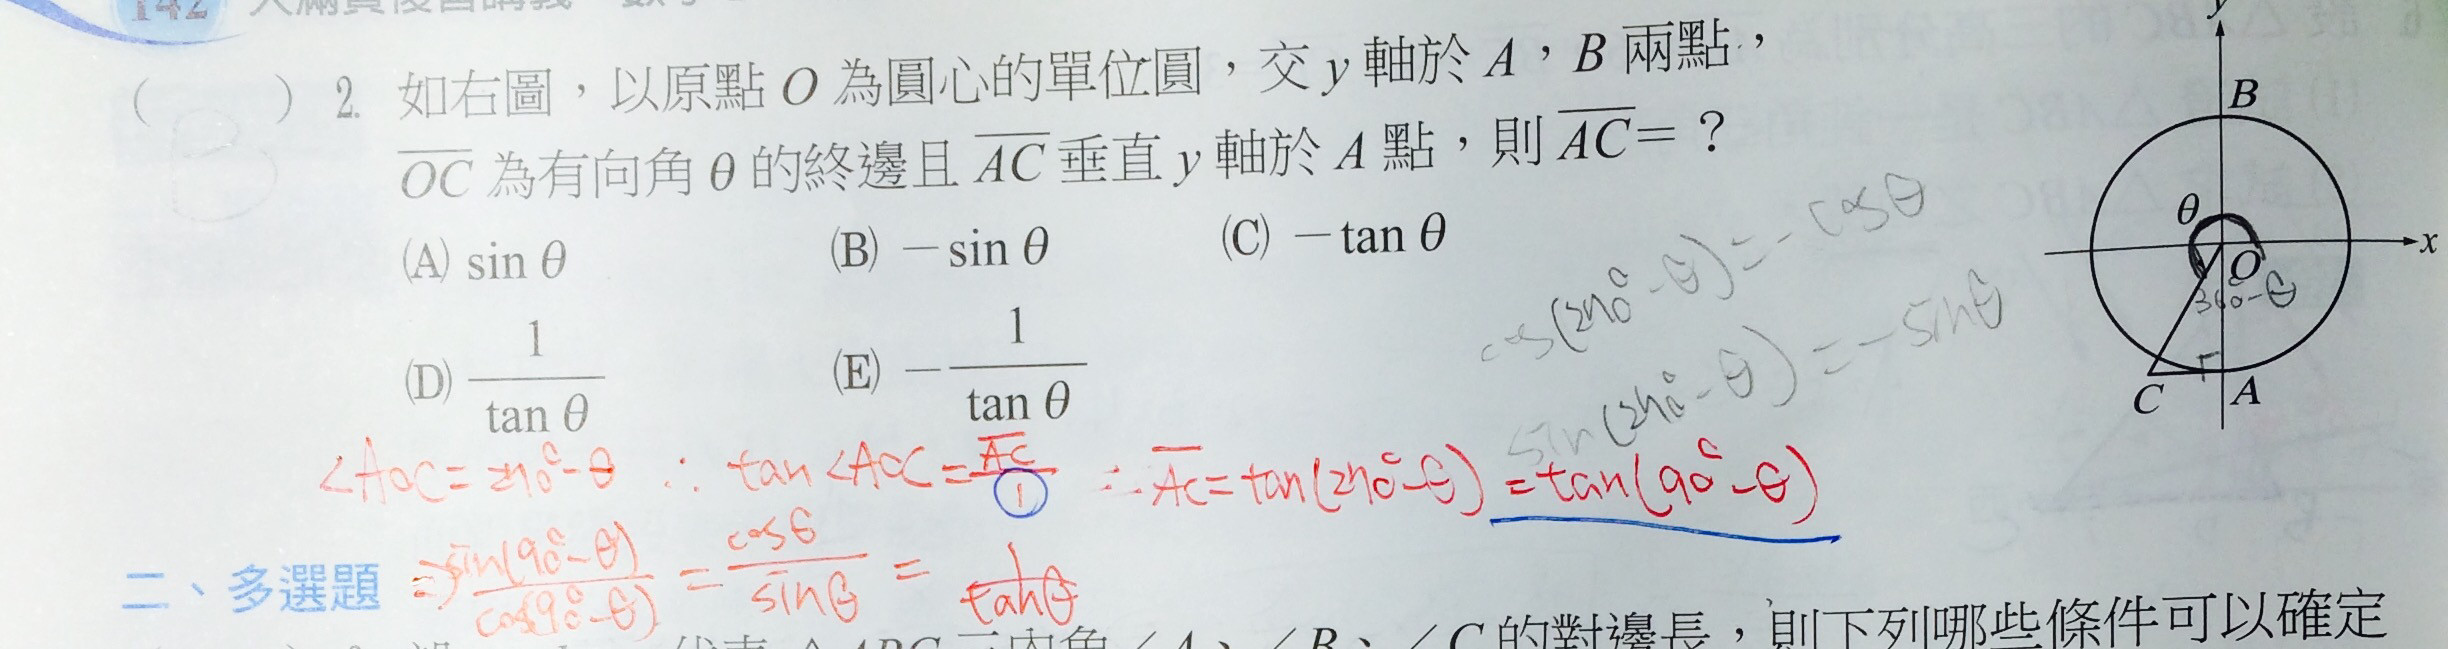 142
( ) 2. 如右圖，以原點 O 為圓心的單位圓，交 y 軸於 A，B 兩點，
OC 為有向角 θ 的終邊且 AC 垂直 y 軸於 A 點，則 AC＝？
(A) sin θ (B) －sin θ (C) －tan θ
(D) 1/tan θ (E) －1/tan θ
B
y
B
θ
O
x
360-θ
C
A
cos(270°-θ)=-cosθ
sin(270°-θ)=-sinθ
∠AOC=270°-θ ∴ tan∠AOC=AC/1 ∴ AC=tan(270°-θ)=tan(90°-θ)
⇒ sin(90°-θ)/cos(90°-θ) = cosθ/sinθ = 1/tanθ
二、多選題
的對邊長，則下列哪些條件可以確定